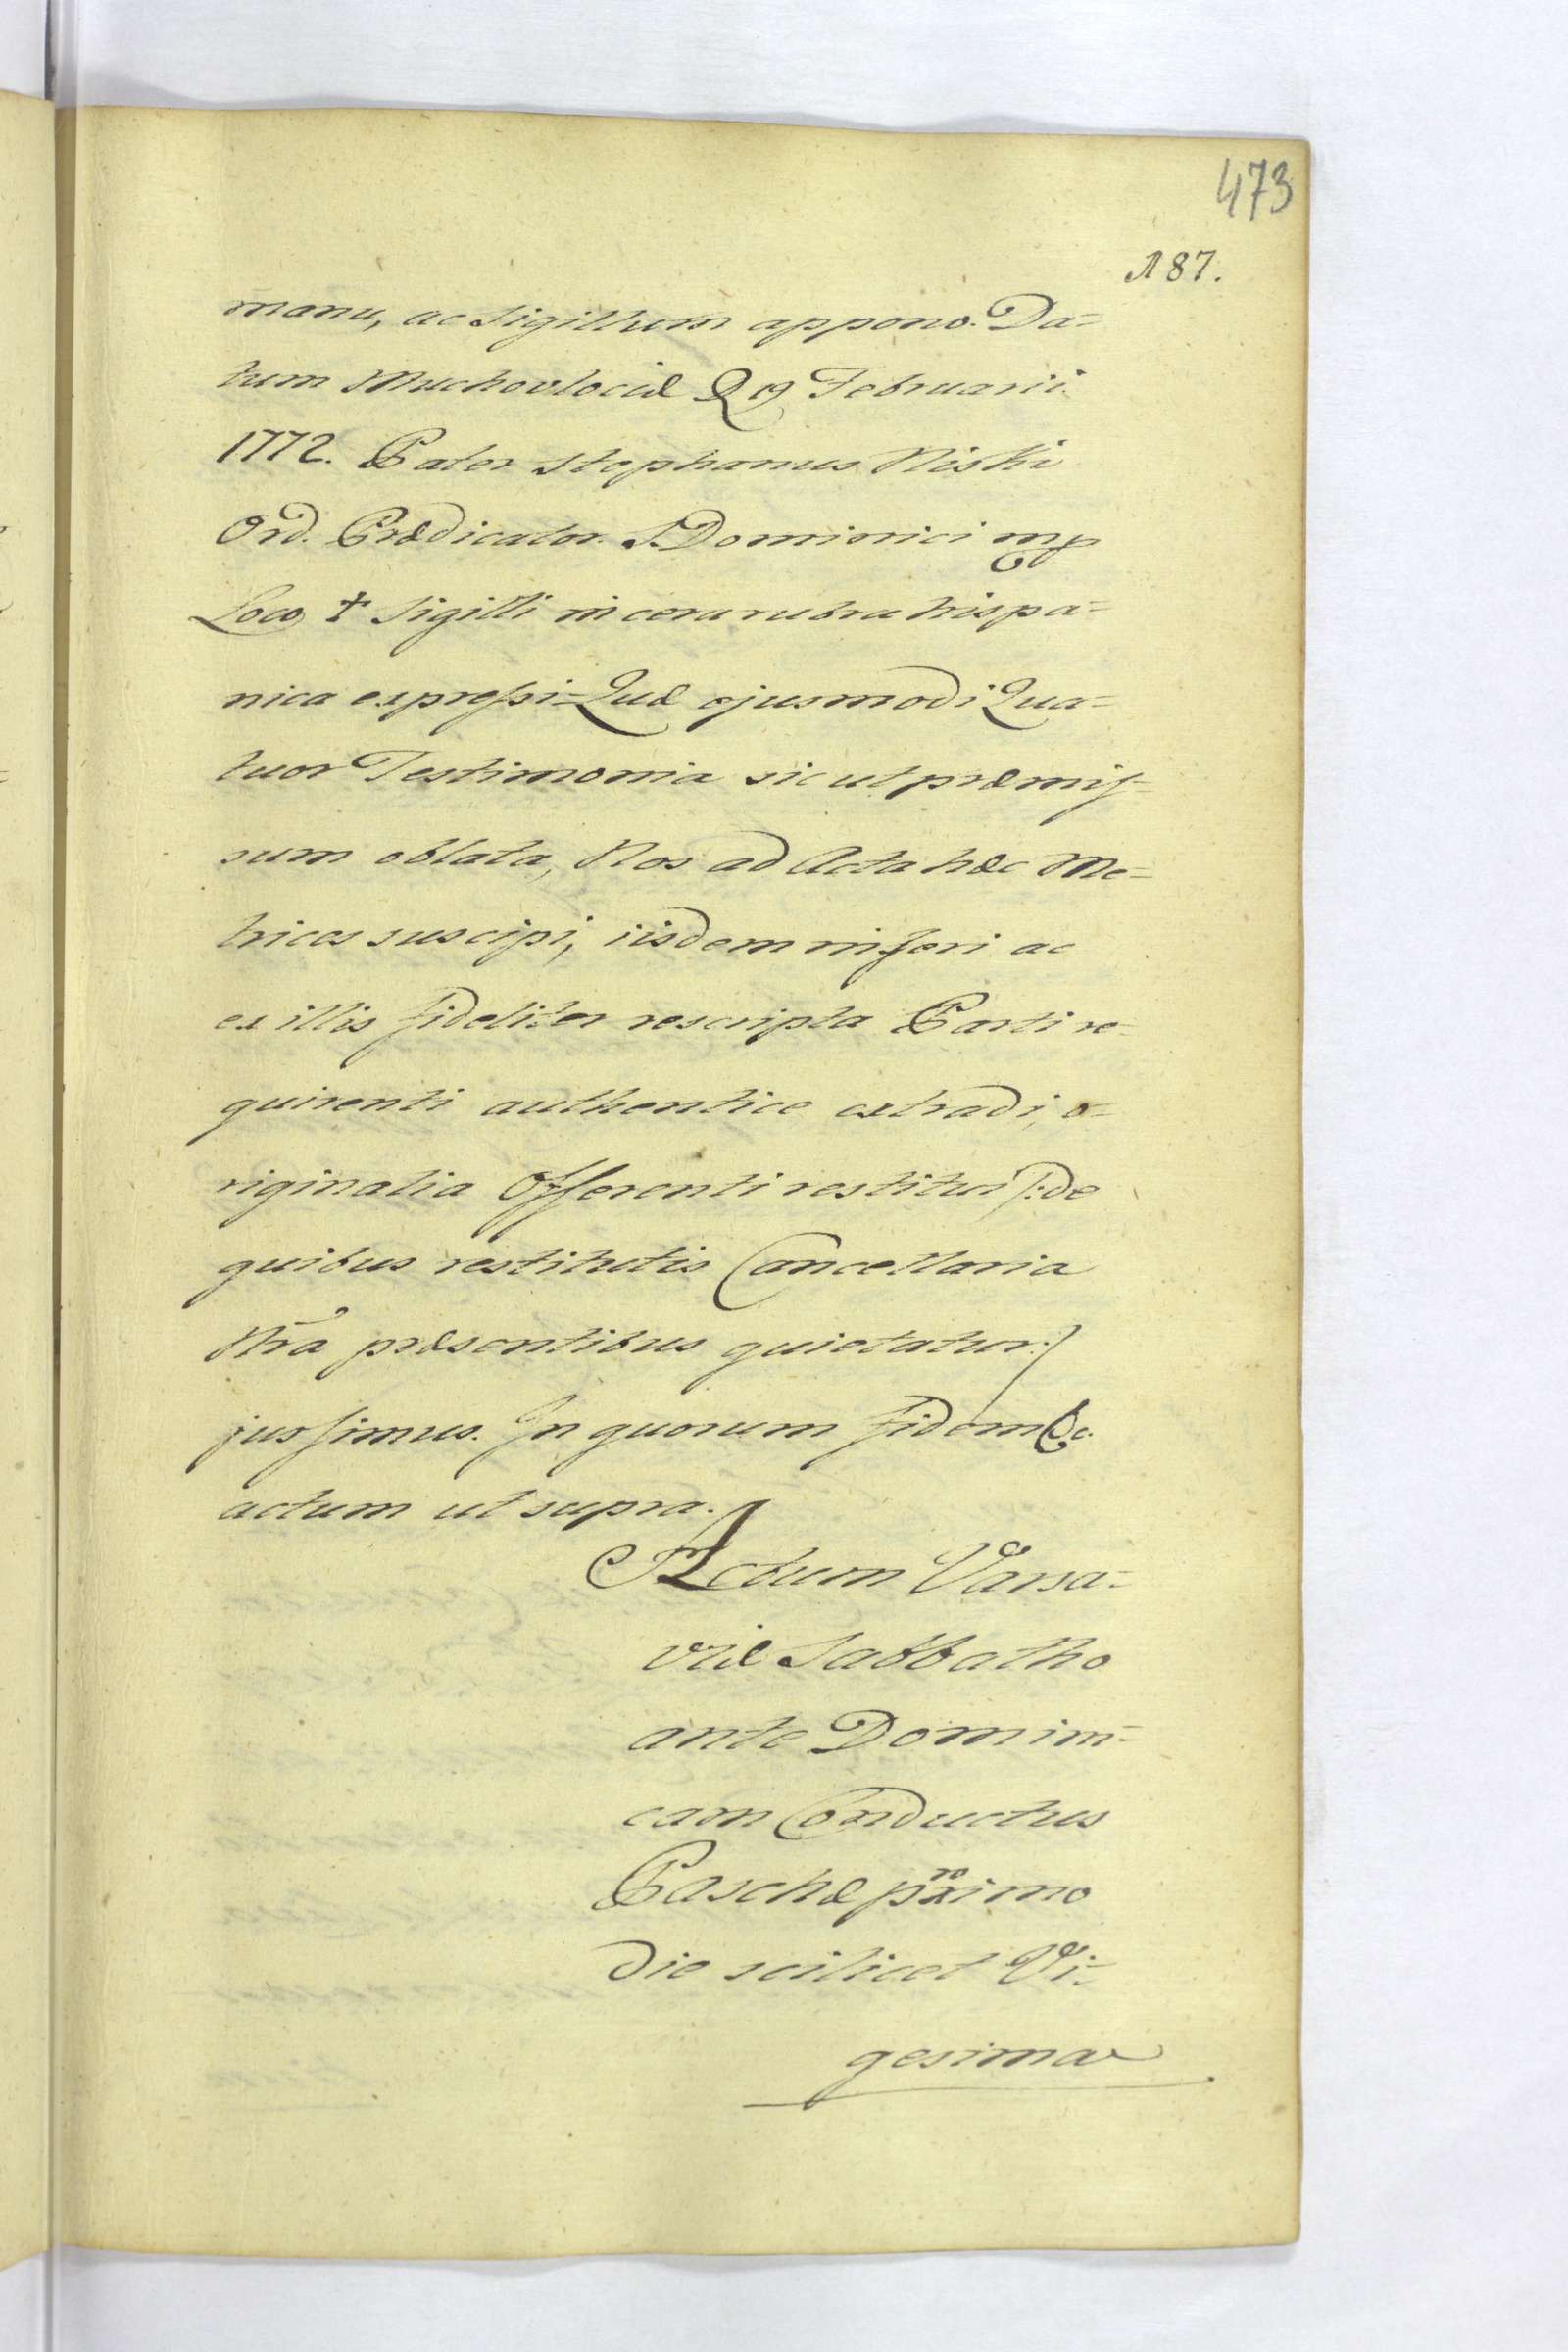 473
187.
manu, ac Sigillum appono. Da=
tum Muchovlociæ D 19 Februarii
1772. Pater Stephanus Niski
Ord. Prædicator. S. Dominici mp
Loco † Sigilli in cera rubra hispa=
nica expressi=Quæ ejusmodi Qua=
tuor Testimonia sicut præmis-
sum oblata, Nos ad Acta hæc Me=
trices suscipi, iisdem inseri ac
ex illis fideliter rescripta Parti re-
quirenti authentice extradi, o=
riginalia Offerenti restitui /:de
quibus restitutis Cancellaria
Nrã præsentibus quietatur:/
jussimus. In quorum fidem &c.
actum ut supra.
Actum Varsa=
viæ Sabbatho
ante Domini=
cam Conductus
Paschæ proximo
die scilicet Vi=
gesima